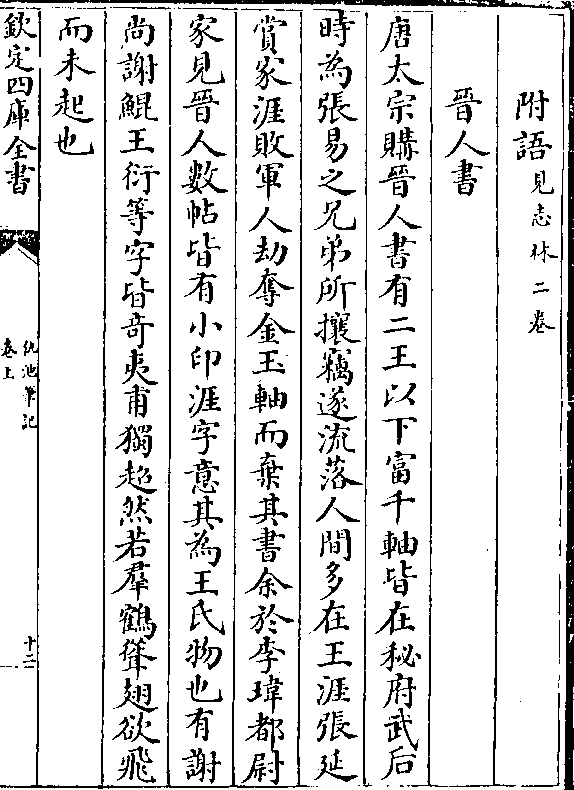 附語見志林二卷
晉人書
唐太宗購晉人書有二王以下富千軸皆在秘府武后
時為張易之兄弟所攘竊遂流落人間多在王涯張延
賞家涯敗軍人劫奪金玉軸而棄其書余於李瑋都尉
家見晉人數帖皆有小印涯字意其為王氏物也有謝
尚謝鯤王衍等字皆奇夷甫獨超然若羣鶴聳翅欲飛
而未起也
欽定四庫全書
仇池筆記
卷上
十二